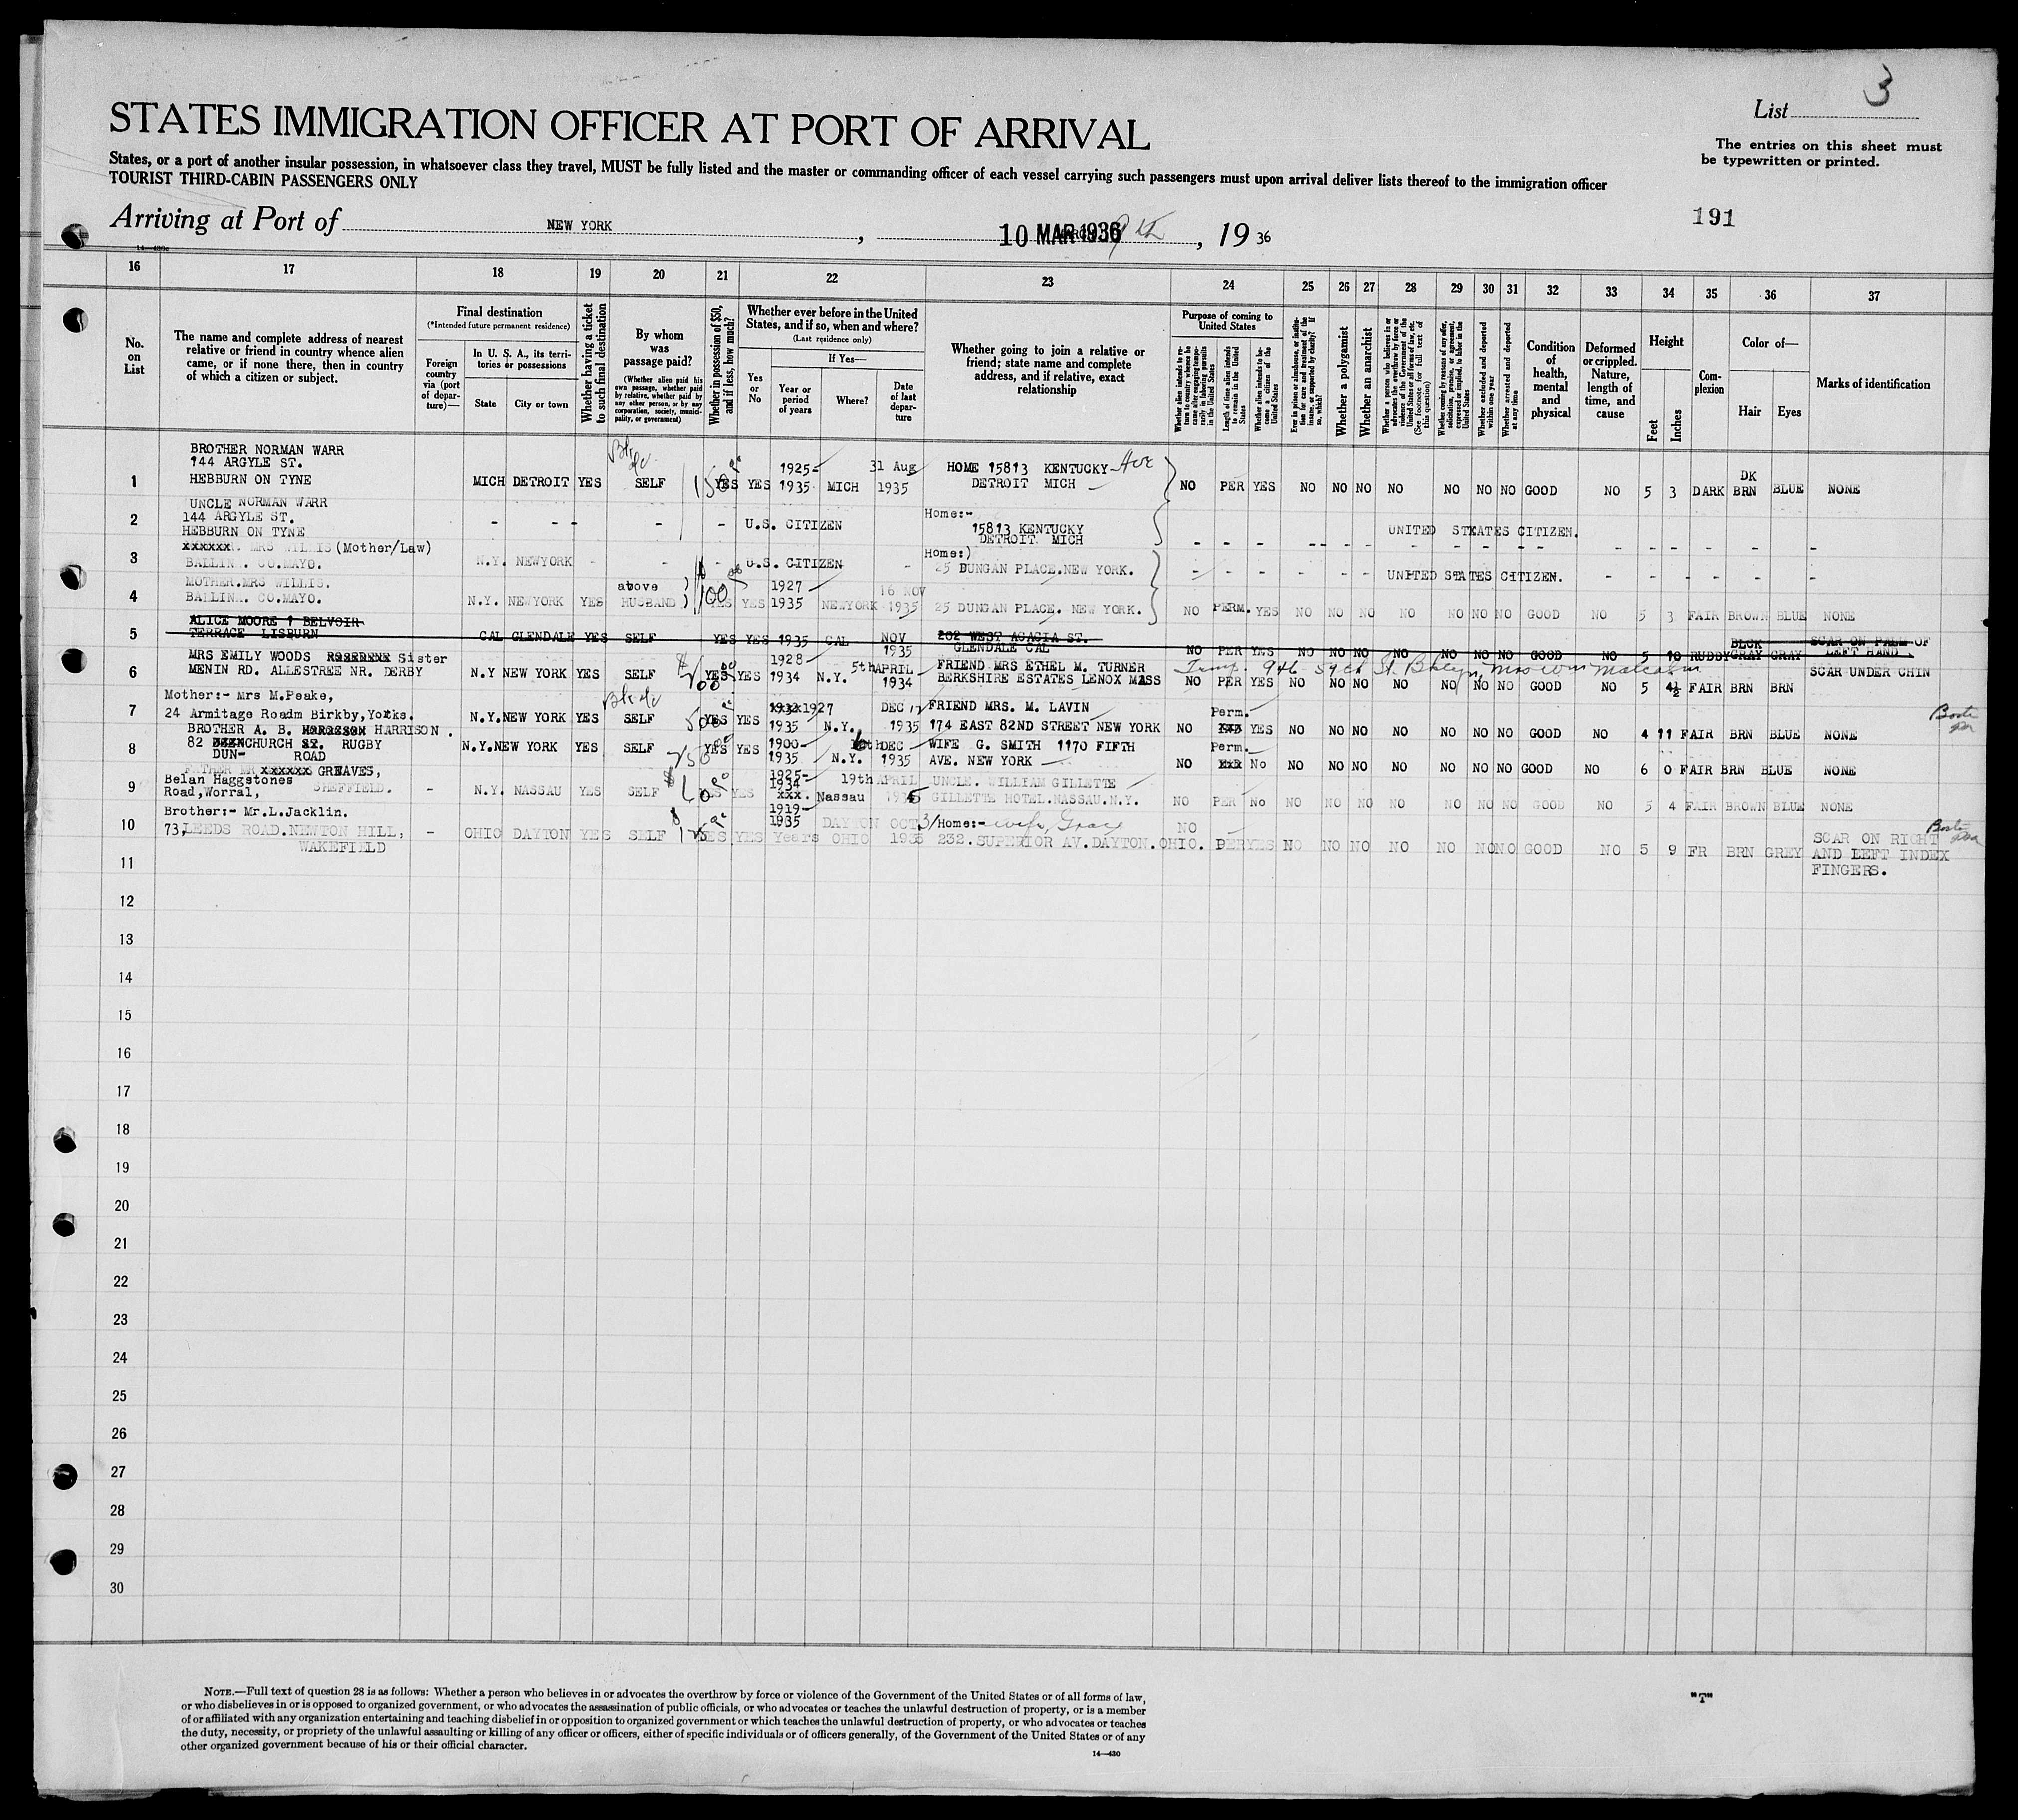 3
List
STATES IMMIGRATION OFFICER AT PORT OF ARRIVAL
The entries on this sheet must
be typewritten or printed.
States, or a port of another insular possession, in whatsoever class they travel, MUST be fully listed and the master or commanding officer of each vessel carrying such passengers must upon arrival deliver lists thereof to the immigration officer
TOURIST THIRD-CABIN PASSENGERS ONLY
191
Arriving at Port of NEW YORK, 10 MAR 1936 9th, 19 36
16 17 18 19 20 21 22 23 24 25 26 27 28 29 30 31 32 33 34 35 36 37
No. on List
The name and complete address of nearest relative or friend in country whence alien came, or if none there, then in country of which a citizen or subject.
Final destination
(*Intended future permanent residence)
Foreign country via (port of departure)—
In U. S. A., its territories or possessions
State
City or town
Whether having a ticket to such final destination
By whom was passage paid?
(Whether alien paid his own passage, whether paid by relative, whether paid by any other person, or by any corporation, society, municipality, or government)
Whether in possession of $50, and if less, how much?
Whether ever before in the United States, and if so, when and where?
(Last residence only)
Yes or No
If Yes—
Year or period of years
Where?
Date of last departure
Whether going to join a relative or friend; state name and complete address, and if relative, exact relationship
Purpose of coming to United States
Whether alien intends to return to country whence he came after engaging temporarily in laboring pursuits in the United States
Length of time alien intends to remain in the United States
Whether alien intends to become a citizen of the United States
Ever in prison or almshouse, or institution for care and treatment of the insane, or supported by charity? If so, which?
Whether a polygamist
Whether an anarchist
Whether a person who believes in or advocates the overthrow by force or violence of the Government of the United States or all forms of law, etc. (See footnote for full text of this question)
Whether coming by reason of any offer, solicitation, promise, or agreement, expressed or implied, to labor in the United States
Whether excluded and deported within one year
Whether arrested and deported at any time
Condition of health, mental and physical
Deformed or crippled. Nature, length of time, and cause
Height
Feet
Inches
Complexion
Color of—
Hair
Eyes
Marks of identification
BROTHER NORMAN WARR
144 ARGYLE ST.
1 HEBBURN ON TYNE MICH DETROIT YES SELF 150 YES YES 1925- 1935 MICH 31 Aug 1935 HOME 15813 KENTUCKY Ave DETROIT MICH NO PER YES NO NO NO NO NO NO NO GOOD NO 5 3 DARK DK BRN BLUE NONE
UNCLE NORMAN WARR
2 144 ARGYLE ST. - - - - - U.S. CITIZEN Home:- 15813 KENTUCKY DETROIT MICH UNITED STATES CITIZEN.
HEBBURN ON TYNE
3 MRS WILLIS (Mother/Law) BALLINA. CO.MAYO. N.Y. NEWYORK - - - U.S. CITIZEN Home:) 25 DUNGAN PLACE.NEW YORK. UNITED STATES CITIZEN.
MOTHER.MRS WILLIS.
4 BALLINA. CO.MAYO. N.Y. NEWYORK YES above HUSBAND 100 YES YES 1927 1935 NEWYORK 16 NOV 1935 25 DUNGAN PLACE. NEW YORK. NO PERM. YES NO NO NO NO NO NO NO GOOD NO 5 3 FAIR BROWN BLUE NONE
ALICE MOORE 1 BELVOIR
5 TERRACE LISBURN CAL GLENDALE YES SELF YES YES 1935 CAL NOV 1935 202 WEST ACACIA ST. GLENDALE CAL NO PER YES NO NO NO NO NO NO NO GOOD NO 5 10 RUDDY BLCK GRAY GRAY SCAR ON PALM OF LEFT HAND
MRS EMILY WOODS Sister
6 MENIN RD. ALLESTREE NR. DERBY N.Y NEW YORK YES SELF YES YES 1928 1934 N.Y. 5th APRIL 1934 FRIEND MRS ETHEL M. TURNER BERKSHIRE ESTATES LENOX MASS NO PER YES NO NO NO NO NO NO NO GOOD NO 5 4½ FAIR BRN BRN SCAR UNDER CHIN
Mother:- Mrs M.Peake,
7 24 Armitage Roadm Birkby,Yorks. N.Y.NEW YORK YES SELF YES YES 1927 1935 N.Y. DEC 1935 FRIEND MRS. M. LAVIN 174 EAST 82ND STREET NEW YORK NO Perm. YES NO NO NO NO NO NO NO GOOD NO 4 11 FAIR BRN BLUE NONE
BROTHER A. B. HARRISON.
8 82 DUNCHURCH ROAD RUGBY N.Y.NEW YORK YES SELF YES YES 1900- 1935 N.Y. DEC 1935 WIFE G. SMITH 1170 FIFTH AVE. NEW YORK NO Perm. No NO NO NO NO NO NO NO GOOD NO 6 0 FAIR BRN BLUE NONE
FATHER MR GREAVES,
9 Belan Haggstones Road,Worral, SHEFFIELD. - N.Y. NASSAU YES SELF YES YES 1925- 1934 Nassau 19th APRIL 1935 UNCLE. WILLIAM GILLETTE GILLETTE HOTEL.NASSAU.N.Y. NO PER No NO NO NO NO NO NO NO GOOD NO 5 4 FAIR BROWN BLUE NONE
Brother:- Mr.L.Jacklin.
10 73,LEEDS ROAD.NEWTON HILL, WAKEFIELD - OHIO DAYTON YES SELF YES YES 1919- 1935 Years DAYTON OHIO OCT 1935 Home:- wife, Grace 232.SUPERIOR AV.DAYTON.OHIO. NO PER YES NO NO NO NO NO NO NO GOOD NO 5 9 FR BRN GREY SCAR ON RIGHT AND LEFT INDEX FINGERS.
11
12
13
14
15
16
17
18
19
20
21
22
23
24
25
26
27
28
29
30
NOTE.—Full text of question 28 is as follows: Whether a person who believes in or advocates the overthrow by force or violence of the Government of the United States or of all forms of law,
or who disbelieves in or is opposed to organized government, or who advocates the assassination of public officials, or who advocates or teaches the unlawful destruction of property, or is a member
of or affiliated with any organization entertaining and teaching disbelief in or opposition to organized government or which teaches the unlawful destruction of property, or who advocates or teaches
the duty, necessity, or propriety of the unlawful assaulting or killing of any officer or officers, either of specific individuals or of officers generally, of the Government of the United States or of any
other organized government because of his or their official character.
14—430
"T"